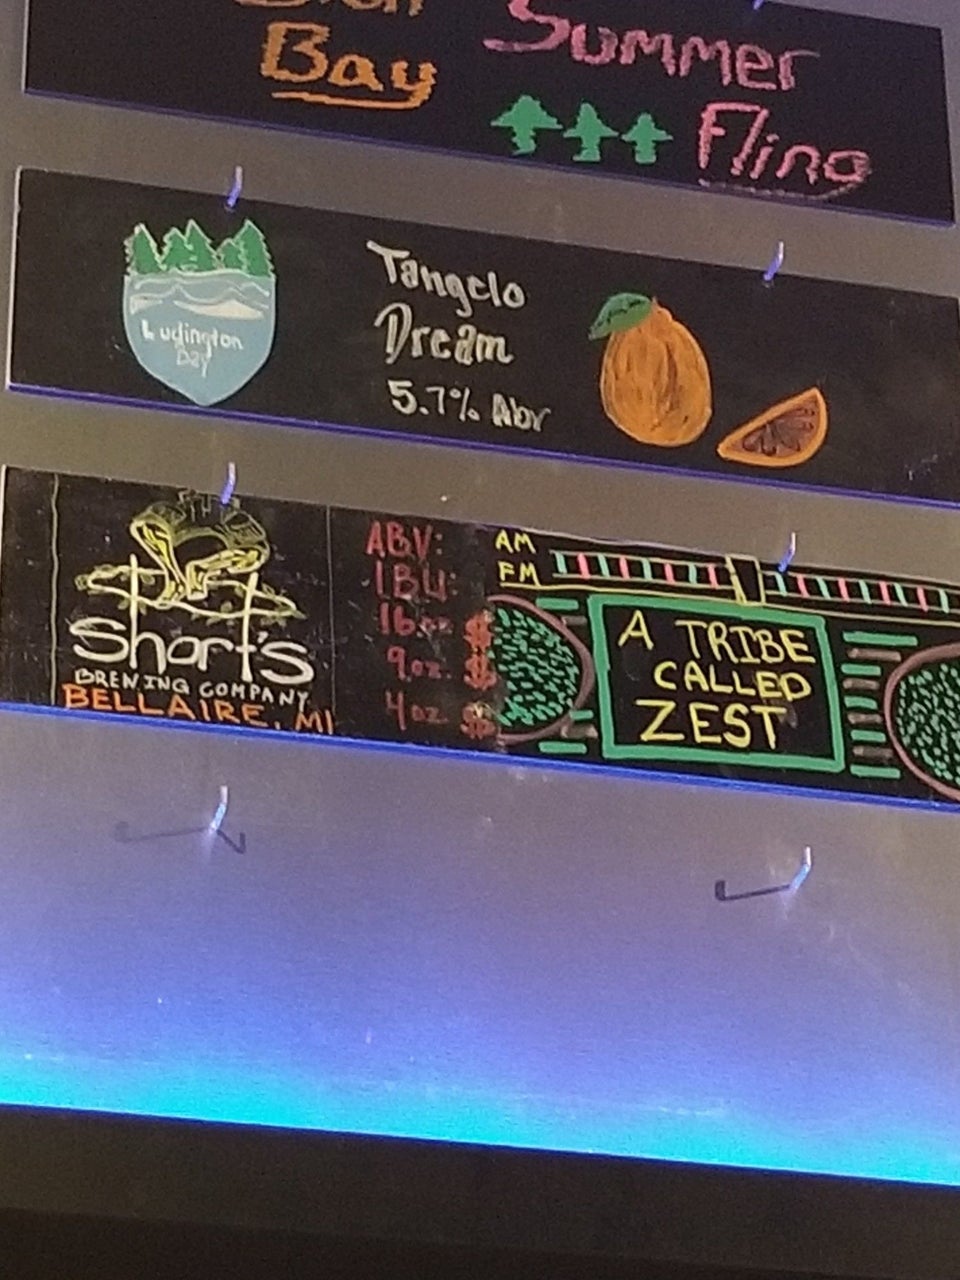 Bay
Summer
Fling
Ludington
Bay
Tangelo
Dream
5.7% Abv
Short's
BREWING COMPANY
BELLAIRE, MI
ABV:
IBU:
16oz $
9oz. $
4oz $
AM
FM
A TRIBE
CALLED
ZEST